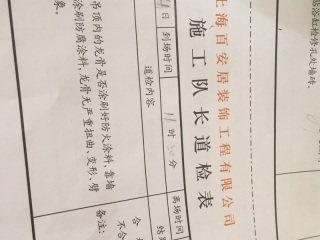 贴浴缸检修孔处墙砖。
上海百安居装饰工程有限公司
施工队长道检表
日 到场时间 11 时 分 离场时间
道检内容
吊顶内的龙骨是否涂刷好防火涂料,靠墙
涂刷防腐涂料,龙骨无严重扭曲、变形、劈
象。
合
不合
备注: